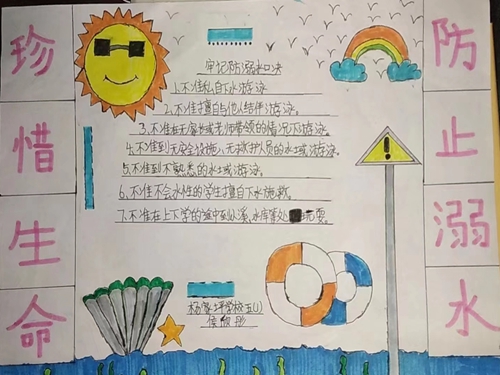 珍惜生命
防止溺水
牢记防溺水口决
1.不准私自下水游泳。
2.不准擅自与他人结伴游泳。
3.不准在无家长或老师带领的情况下游泳。
4.不准到无安全设施、无救护人员的水域游泳。
5.不准到不熟悉的水域游泳。
6.不准不会水性的学生擅自下水施救。
7.不准在上下学的途中到小溪、水库等处玩耍。
杨家坪学校五(1)
侯欣彤
!